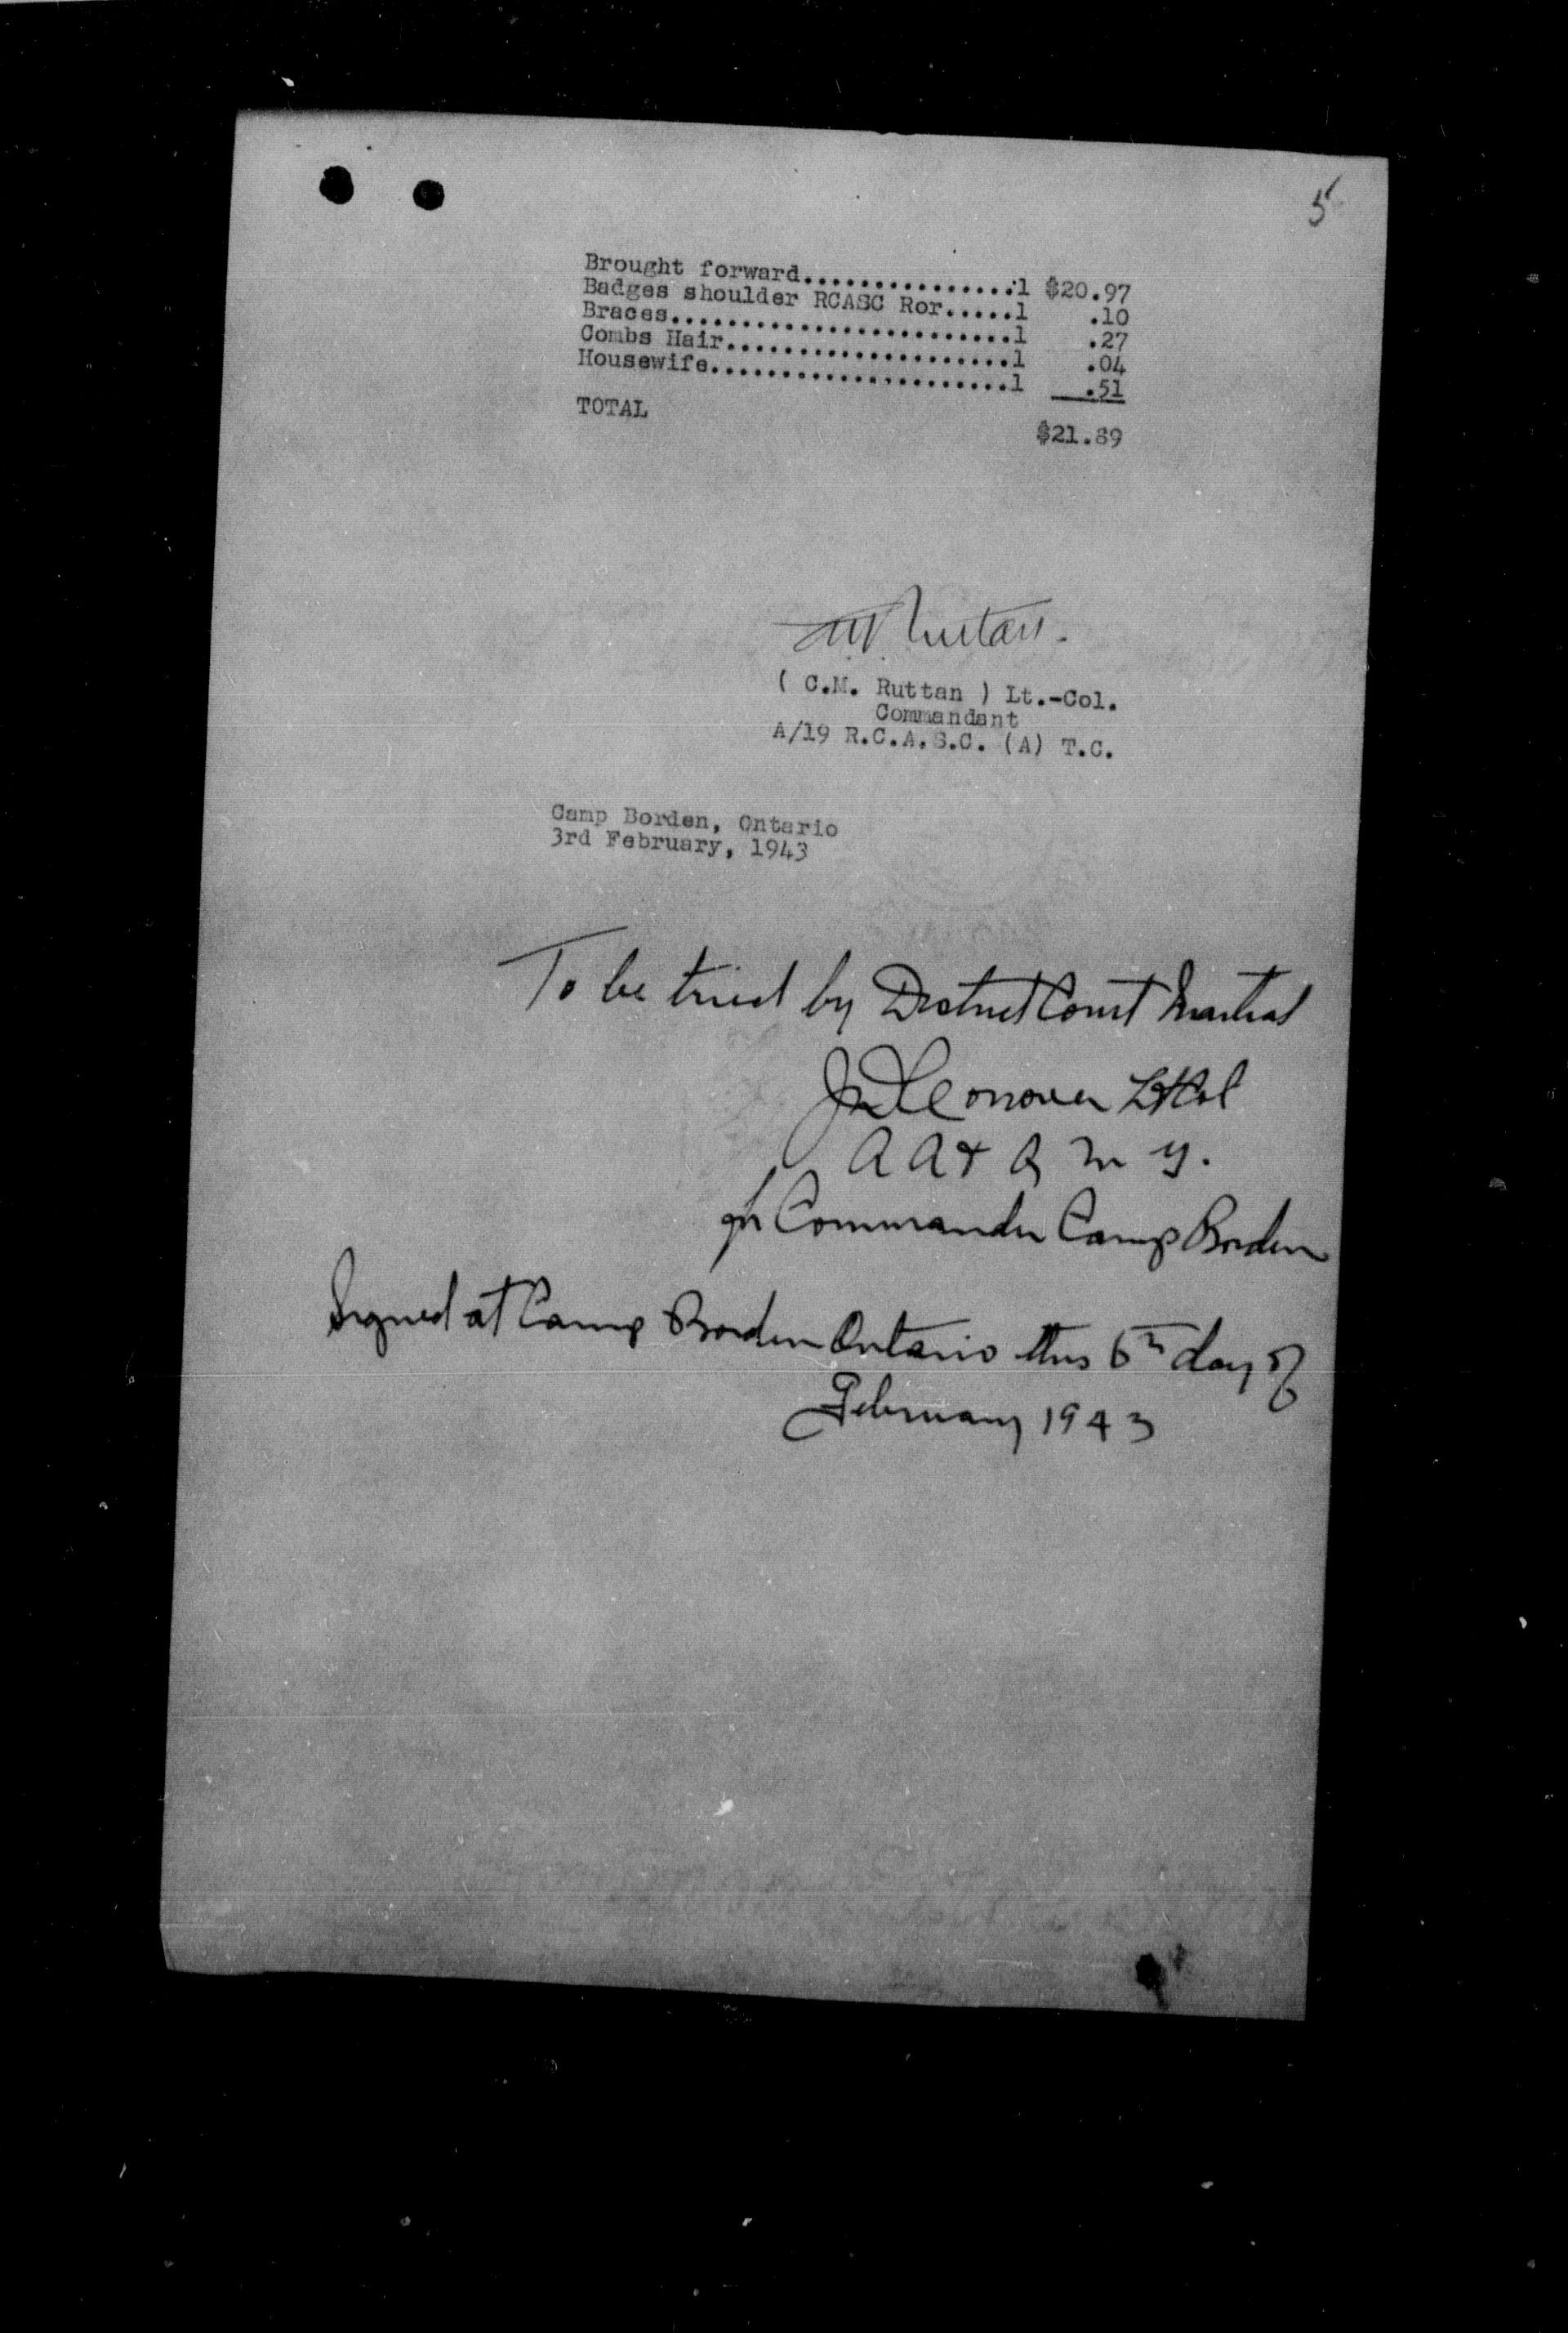 5
Brought forward...............1 $20.97
Badges shoulder RCASC Ror.....1 .10
Braces........................1 .27
Combs Hair....................1 .04
Housewife.....................1 .51
TOTAL
$21.89
Ruttan.
( C.M. Ruttan ) Lt.-Col.
Commandant
A/19 R.C.A.S.C. (A) T.C.
Camp Borden, Ontario
3rd February, 1943
To be tried by District Court Martial
Conover Lt Col
A A & Q M G.
for Commander Camp Borden
Signed at Camp Borden Ontario this 6th day of
February 1943